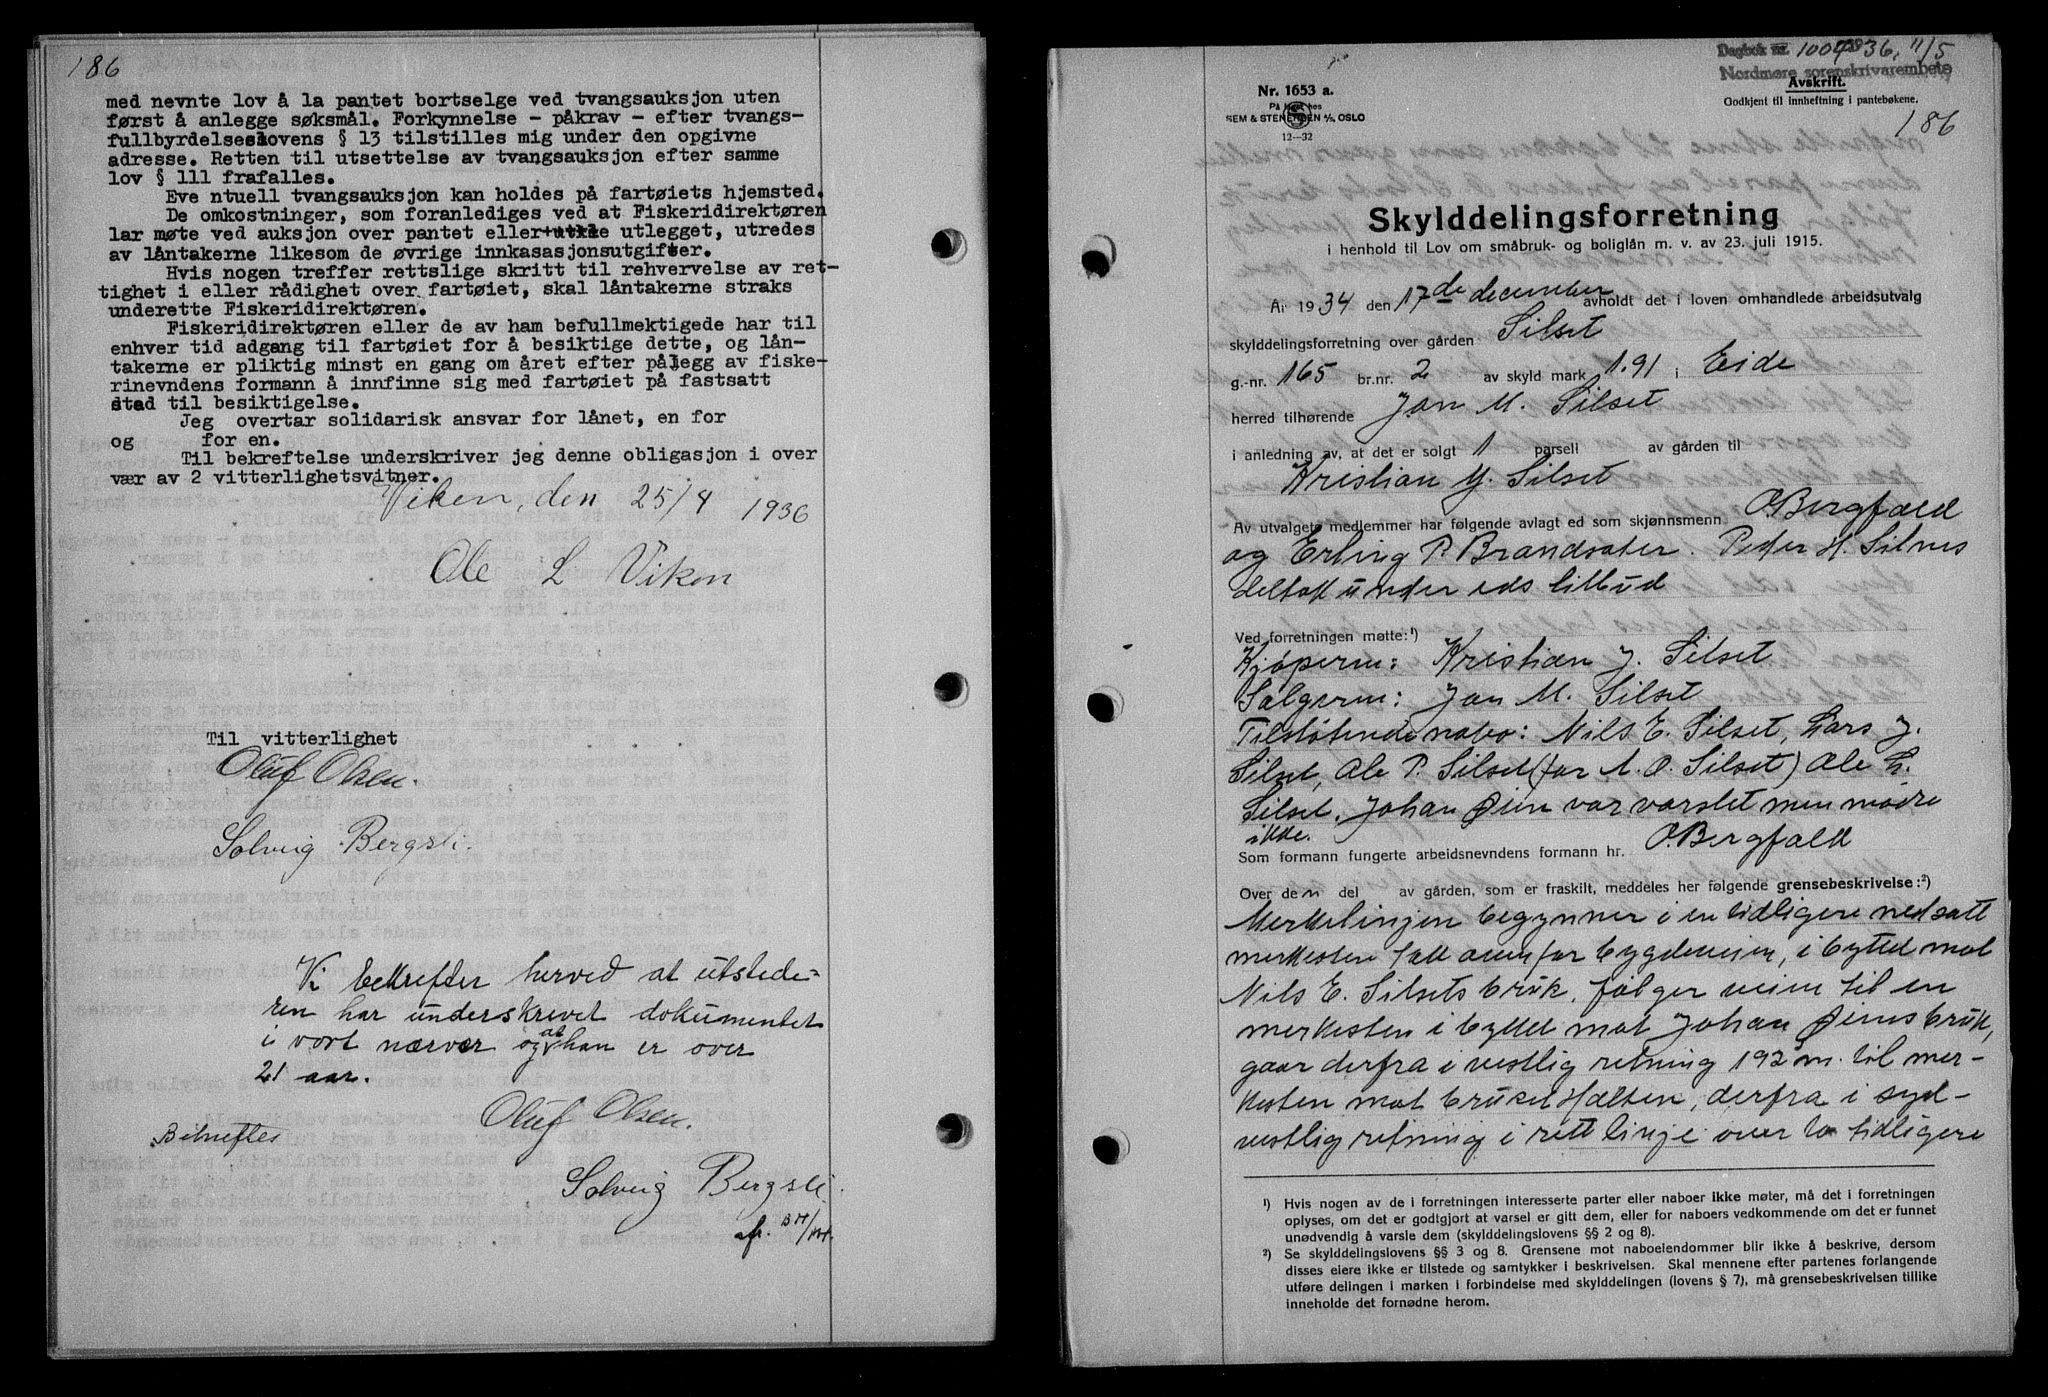 186
med nevnte lov å la pantet bortselge ved tvangsauksjon uten
først å anlegge søksmål. Forkynnelse - påkrav - efter tvangs-
fullbyrdelseslovens § 13 tilstilles mig under den opgivne
adresse. Retten til utsettelse av tvangsauksjon efter samme
lov § 111 frafalles.
Eve ntuell tvangsauksjon kan holdes på fartøiets hjemsted.
De omkostninger, som foranlediges ved at Fiskeridirektøren
lar møte ved auksjon over pantet eller utlegget, utredes
av låntakerne likesom de øvrige innkasasjonsutgifter.
Hvis nogen treffer rettslige skritt til rehvervelse av ret-
tighet i eller rådighet over fartøiet, skal låntakerne straks
underette Fiskeridirektøren.
Fiskeridirektøren eller de av ham befullmektigede har til
enhver tid adgang til fartøiet for å besiktige dette, og lån-
takerne er pliktig minst en gang om året efter pålegg av fiske-
rinevndens formann å innfinne sig med fartøiet på fastsatt
sted til besiktigelse.
Jeg overtar solidarisk ansvar for lånet, en for
og for en.
Til bekreftelse underskriver jeg denne obligasjon i over
vær av 2 vitterlighetsvitner.
Viken, den 25/4 1936
Ole L Viken
Til vitterlighet
Oluf Olsen.
Solveig Bergsli.
Vi bekrefter herved at utstede-
ren har underskrevet dokumentet
i vort nærvær og at han er over
21 aar.
Oluf Olsen.
Bekreftes
Solveig Bergsli.
Dagbok nr. 1004 1936, 11/5
Nordmøre sorenskrivarembete
Avskrift.
Godkjent til innheftning i pantebøkene.
186
Nr. 1653 a.
På lager hos
SEM & STENERSEN A/S, OSLO
12—32
Skylddelingsforretning
i henhold til Lov om småbruk- og boliglån m. v. av 23. juli 1915.
År 1934 den 17de december avholdt det i loven omhandlede arbeidsutvalg
skylddelingsforretning over gården Silset
g.-nr. 165 br.nr. 2 av skyld mark 1.91 i Eide
herred tilhørende Jon M. Silset
i anledning av, at det er solgt 1 parsell av gården til
Kristian J. Silset
Av utvalgets medlemmer har følgende avlagt ed som skjønnsmenn O. Bergfald
og Erling P. Brandsæter. Peder H. Silnes
deltok under eds tilbud
Ved forretningen møtte:¹)
Kjøperen: Kristian J. Silset
Sælgeren: Jon M. Silset
Tilstøtende naboer: Nils E. Silset, Lars J.
Silset, Ole P. Silset (for A. O. Silset) Ole L.
Silset. Johan Øien var varslet men mødte
ikke.
Som formann fungerte arbeidsnevndens formann hr. O. Bergfald
Over den del av gården, som er fraskilt, meddeles her følgende grensebeskrivelse:²)
Merkelinjen begynner i en tidligere nedsatt
merkesten tett ovenfor bygdeveien, i byttet mot
Nils E. Silsets bruk, følger veien til en
merkesten i byttet mot Johan Øiens bruk,
gaar derfra i vestlig retning 192 m. til mer-
kesten mot bruket Hælten, derfra i syd-
vestlig retning i rett linje over to tidligere
¹) Hvis nogen av de i forretningen interesserte parter eller naboer ikke møter, må det i forretningen
oplyses, om det er godtgjort at varsel er gitt dem, eller for naboers vedkommende om det er funnet
unødvendig å varsle dem (skylddelingslovens §§ 2 og 8).
²) Se skylddelingslovens §§ 3 og 8. Grensene mot naboeiendommer blir ikke å beskrive, dersom
disses eiere ikke er tilstede og samtykker i beskrivelsen. Skal mennene efter partenes forlangende
utføre delingen i marken i forbindelse med skylddelingen (lovens § 7), må grensebeskrivelsen tillike
inneholde det fornødne herom.